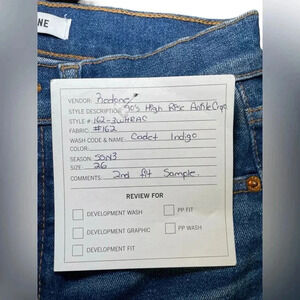 ONE
VENDOR: Redone
STYLE DESCRIPTION: 90's High Rise Ankle Crop
STYLE #: 162-3WHRAC
FABRIC: #162
WASH CODE & NAME: Cadet Indigo
COLOR:
SEASON: SSN3
SIZE: 26
COMMENTS: 2nd fit Sample.
REVIEW FOR
DEVELOPMENT WASH PP FIT
DEVELOPMENT GRAPHIC PP WASH
DEVELOPMENT FIT